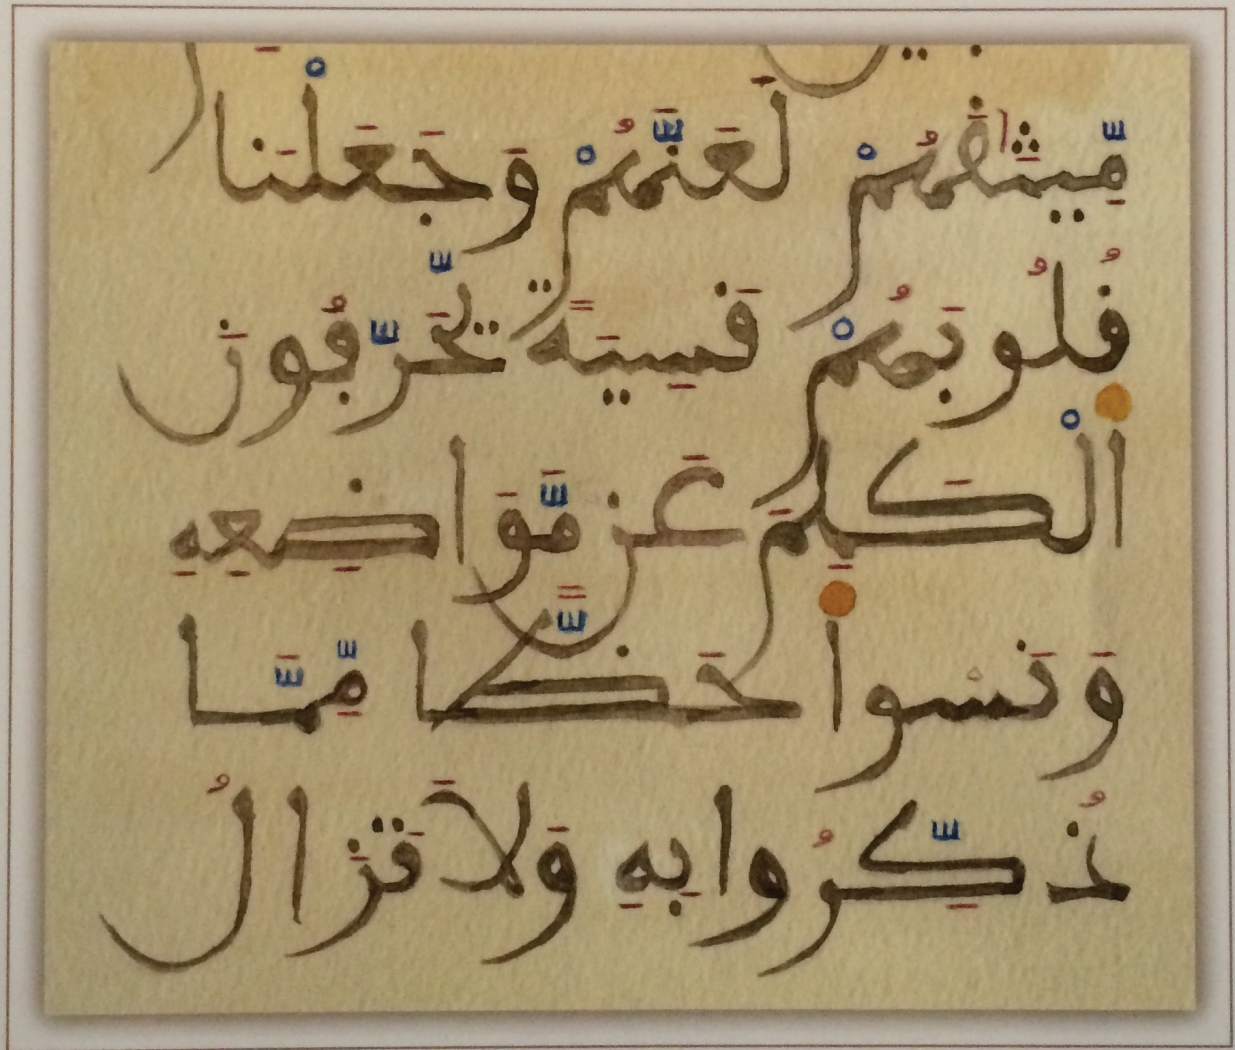 مِّيثَٰقَهُمْ لَعَنَّهُمْ وَجَعَلْنَا
قُلُوبَهُمْ قَسِيَةً يُحَرِّفُونَ
الْكَلِمَ عَن مَّوَاضِعِهِ
وَنَسُوا حَظًّا مِّمَّا
ذُكِّرُوا بِهِ وَلَا تَزَالُ